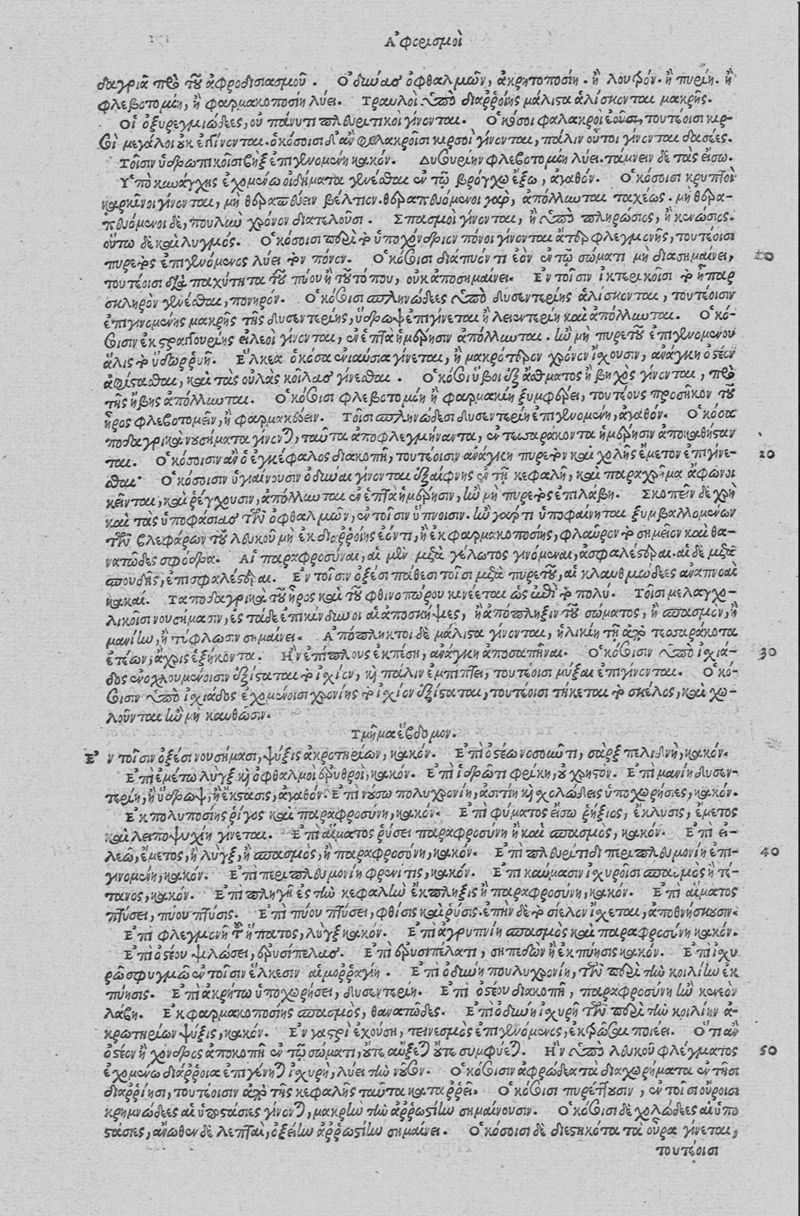 Ἀφορισμοὶ
δαγριᾷ πρὸ τοῦ ἀφροδισιασμοῦ. Ὀδύνας ὀφθαλμῶν, ἀκρητοποσίη. ἢ λουτρόν. ἢ πυρίη. ἢ
φλεβοτομίη, ἢ φαρμακοποσίη λύει. Τραυλοὶ ὑπὸ διαῤῥοίης μάλιστα ἁλίσκονται μακρῆς.
Οἱ ὀξυρεγμιώδεες, οὐ πάνυ τι πλευριτικοὶ γίνονται. Ὁκόσοι φαλακροὶ ἐοῦσι, τουτέοισι κιρ-
σοὶ μεγάλοι οὐκ ἐπιγίνονται. ὁκόσοισι δ' ἂν φαλακροῖσι κιρσοὶ γίνονται, πάλιν οὗτοι γίνονται δασέες.
Τοῖσιν ὑδρωπικοῖσι βὴξ ἐπιγινομένη κακόν. Δυσουρίην φλεβοτομίη λύει. τάμνειν δὲ τὰς εἴσω.
Ὑπὸ κυνάγχης ἐχομένῳ οἰδήματα γενέσθαι ἐν τῷ βρόγχῳ ἔξω, ἀγαθόν. Ὁκόσοισι κρυπτοὶ
καρκῖνοι γίνονται, μὴ θεραπεύειν βέλτιον. θεραπευόμενοι γὰρ, ἀπόλλυνται ταχέως. μὴ θερα-
πευόμενοι δὲ, πουλὺν χρόνον διατελοῦσι. Σπασμοὶ γίνονται, ἢ ὑπὸ πληρώσιος, ἢ κενώσιος.
οὕτω δὲ καὶ λυγμός. Ὁκόσοισι περὶ τὸ ὑποχόνδριον πόνοι γίνονται ἄτερ φλεγμονῆς, τουτέοισι
πυρετὸς ἐπιγενόμενος λύει τὸν πόνον. Ὁκόσοισι διάπυόν τι ἐὸν ἐν τῷ σώματι μὴ διασημαίνει, 10
τουτέοισι διὰ παχύτητα τοῦ πύου ἢ τοῦ τόπου, οὐκ ἀποσημαίνει. Ἐν τοῖσιν ἰκτερικοῖσι τὸ ἧπαρ
σκληρὸν γενέσθαι, πονηρόν. Ὁκόσοισι σπληνώδεες ὑπὸ δυσεντερίης ἁλίσκονται, τουτέοισιν
ἐπιγινομένης μακρῆς τῆς δυσεντερίης, ὕδρωψ ἐπιγίνεται ἢ λειεντερίη καὶ ἀπόλλυνται. Ὁκό-
σοισιν ἐκ στραγγουρίης εἰλεοὶ γίνονται, ἐν ἑπτὰ ἡμέρῃσιν ἀπόλλυνται. ἢν μὴ πυρετοῦ ἐπιγενομένου
ἅλις τὸ ὖρον ῥυῇ. Ἕλκεα ὁκόσα ἐνιαύσια γίνεται, ἢ μακρότερον χρόνον ἴσχουσιν, ἀνάγκη ὀστέον
ἀφίστασθαι, καὶ τὰς οὐλὰς κοίλας γίνεσθαι. Ὁκόσοι ὑβοὶ ἐξ ἄσθματος ἢ βηχὸς γίνονται, πρὸ
τῆς ἥβης ἀπόλλυνται. Ὁκόσοισι φλεβοτομίη ἢ φαρμακίη ξυμφέρει, τουτέους προσῆκον τοῦ
ἦρος φλεβοτομεῖν, ἢ φαρμακεύειν. Τοῖσι σπληνώδεσι δυσεντερίη ἐπιγενομένη, ἀγαθόν. Ὁκόσα
ποδαγρικὰ νουσήματα γίνεται, ταῦτα ἀποφλεγμήναντα, ἐν τεσσαράκοντα ἡμέρῃσιν ἀποκαθίσταν
ται. Ὁκόσοισιν ἂν ὁ ἐγκέφαλος διακοπῇ, τουτέοισιν ἀνάγκη πυρετὸν καὶ χολῆς ἔμετον ἐπιγίνε- 20
σθαι. Ὁκόσοισιν ὑγιαίνουσιν ὀδύναι γίνονται ἐξαίφνης ἐν τῇ κεφαλῇ, καὶ παραχρῆμα ἄφωνοι
κεῖνται, καὶ ῥέγχουσιν, ἀπόλλυνται ἐν ἑπτὰ ἡμέρῃσιν, ἢν μὴ πυρετὸς ἐπιλάβῃ. Σκοπεῖν δὲ χρὴ
καὶ τὰς ὑποφάσιας τῶν ὀφθαλμῶν, ἐν τοῖσιν ὕπνοισιν. ἢν γάρ τι ὑποφαίνηται ξυμβαλλομένων
τῶν βλεφάρων τοῦ λευκοῦ μὴ ἐκ διαῤῥοίης ἐόντι, ἢ ἐκ φαρμακοποσίης, φλαῦρον τὸ σημεῖον καὶ θα-
νατῶδες σφόδρα. Αἱ παραφροσύναι, αἱ μὲν μετὰ γέλωτος γινόμεναι, ἀσφαλέστεραι. αἱ δὲ μετὰ
σπουδῆς, ἐπισφαλέστεραι. Ἐν τοῖσιν ὀξέσι πάθεσι τοῖσι μετὰ πυρετοῦ, αἱ κλαυθμώδεες ἀναπνοαὶ
κακαί. Τὰ ποδαγρικὰ τοῦ ἦρος καὶ τοῦ φθινοπώρου κινέεται ὡς ἐπὶ τὸ πολύ. Τοῖσι μελαγχο-
λικοῖσι νουσήμασιν, ἐς τάδε ἐπικίνδυνοι αἱ ἀποσκήψιες, ἢ ἀπόπληξιν τοῦ σώματος, ἢ σπασμὸν, ἢ
μανίην, ἢ τύφλωσιν σημαίνει. Ἀπόπληκτοι δὲ μάλιστα γίνονται, ἡλικίῃ τῇ ἀπὸ τεσσαράκοντα
ἐτέων, ἄχρις ἑξήκοντα. Ἢν ἐπίπλους ἐκπέσῃ, ἀνάγκη ἀποσαπῆναι. Ὁκόσοισιν ὑπὸ ἰσχιά- 30
δος ἐνοχλουμένοισιν ἐξίσταται τὸ ἰσχίον, καὶ πάλιν ἐμπίπτει, τουτέοισι μύξαι ἐπιγίνονται. Ὁκό-
σοισιν ὑπὸ ἰσχιάδος ἐχομένοισι χρονίης τὸ ἰσχίον ἐξίσταται, τουτέοισι τήκεται τὸ σκέλος, καὶ χω-
λοῦνται ἢν μὴ καυθῶσιν.
Τμῆμα ἕβδομον.
Ἐν τοῖσιν ὀξέσι νουσήμασι, ψύξις ἀκρωτηρίων, κακόν. Ἐπὶ ὀστέῳ νοσέοντι, σὰρξ πελιδνὴ, κακόν.
Ἐπὶ ἐμέτῳ λὺγξ καὶ ὀφθαλμοὶ ἐρυθροὶ, κακόν. Ἐπὶ ἱδρῶτι φρίκη, οὐ χρηστόν. Ἐπὶ μανίῃ δυσεν-
τερίη, ἢ ὕδρωψ, ἢ ἔκστασις, ἀγαθόν. Ἐπὶ νούσῳ πολυχρονίῃ, ἀσιτίη καὶ χολώδεις ὑποχωρήσιες, κακόν.
Ἐκ πολυποσίης ῥῖγος καὶ παραφροσύνη, κακόν. Ἐπὶ φύματος εἴσω ῥήξιος, ἔκλυσις, ἔμετος
καὶ λειποψυχίη γίνεται. Ἐπὶ αἵματος ῥύσει παραφροσύνη ἢ καὶ σπασμὸς, κακόν. Ἐπὶ εἰ-
λεῷ, ἔμετος, ἢ λὺγξ, ἢ σπασμὸς, ἢ παραφροσύνη, κακόν. Ἐπὶ πλευρίτιδι περιπλευμονίη ἐπι- 40
γινομένη, κακόν. Ἐπὶ περιπλευμονίῃ φρενῖτις, κακόν. Ἐπὶ καύμασιν ἰσχυροῖσι σπασμὸς ἢ τέ-
τανος, κακόν. Ἐπὶ πληγῇ ἐς τὴν κεφαλὴν ἔκπληξις ἢ παραφροσύνη, κακόν. Ἐπὶ αἵματος
πτύσει, πύου πτύσις. Ἐπὶ πύου πτύσει, φθίσις καὶ ῥύσις. ἐπὴν δὲ τὸ σίελον ἴσχεται, ἀποθνήσκουσιν.
Ἐπὶ φλεγμονῇ τοῦ ἥπατος, λὺγξ κακόν. Ἐπὶ ἀγρυπνίῃ σπασμὸς καὶ παραφροσύνη κακόν.
Ἐπὶ ὀστέου ψιλώσει, ἐρυσίπελας. Ἐπὶ ἐρυσιπέλατι, σηπεδὼν ἢ ἐκπύησις κακόν. Ἐπὶ ἰσχυ
ρῷ σφυγμῷ ἐν τοῖσιν ἕλκεσιν αἱμορραγίη. Ἐπὶ ὀδύνῃ πουλυχρονίῃ, τῶν περὶ τὴν κοιλίην ἐκ
πύησις. Ἐπὶ ἀκρήτῳ ὑποχωρήσει, δυσεντερίη. Ἐπὶ ὀστέου διακοπῇ, παραφροσύνη ἢν κενεὸν
λάβῃ. Ἐκ φαρμακοποσίης σπασμὸς, θανατῶδες. Ἐπὶ ὀδύνῃ ἰσχυρῇ τῶν περὶ τὴν κοιλίην ἀ-
κρωτηρίων ψύξις, κακόν. Ἐν γαστρὶ ἐχούσῃ, τεινεσμὸς ἐπιγενόμενος, ἐκτρῶσαι ποιέει. Ὅ τι ἂν
ὀστέον ἢ χόνδρος ἀποκοπῇ ἐν τῷ σώματι, οὔτε αὔξεται οὔτε συμφύεται. Ἢν ὑπὸ λευκοῦ φλέγματος 50
ἐχομένῳ διάῤῥοια ἐπιγένηται ἰσχυρὴ, λύει τὴν νοῦσον. Ὁκόσοισιν ἀφρώδεα τὰ διαχωρήματα ἐν τῇσι
διαῤῥοίῃσι, τουτέοισιν ἀπὸ τῆς κεφαλῆς ταῦτα καταῤῥέει. Ὁκόσοισι πυρέττουσιν, ἐν τοῖσι οὔροισι
κρημνώδεες αἱ ὑποστάσιες γίνονται, μακρὴν τὴν ἀῤῥωστίην σημαίνουσιν. Ὁκόσοισι δὲ χολώδεες αἱ ὑπο
στάσιες, ἄνωθεν δὲ λεπταὶ, ὀξείην ἀῤῥωστίην σημαίνει. Ὁκόσοισι δὲ διεστηκότα τὰ οὖρα γίνεται,
τουτέοισι